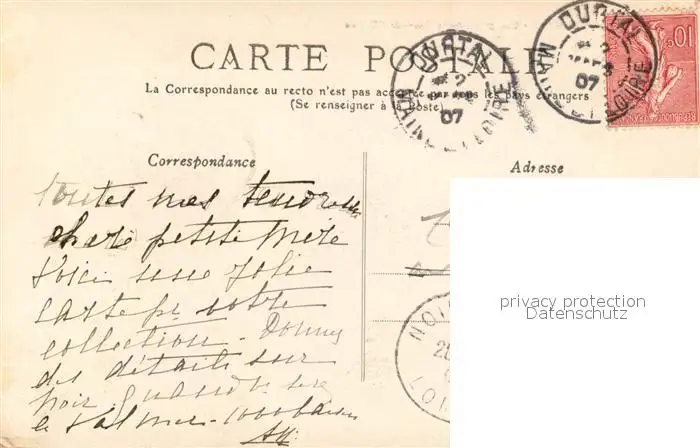 CARTE POSTALE
La Correspondance au recto n'est pas acceptée par tous les pays étrangers
(Se renseigner à la Poste)
DURTAL
MAINE ET LOIRE
07
DURTAL
MAINE ET LOIRE
07
10c
Correspondance
Adresse
toutes mes tendresses
chere petite mère
Voici une jolie
carte pr votre
collection. Donnez
des détails sur
noir
privacy protection
Datenschutz
NOI
LOI